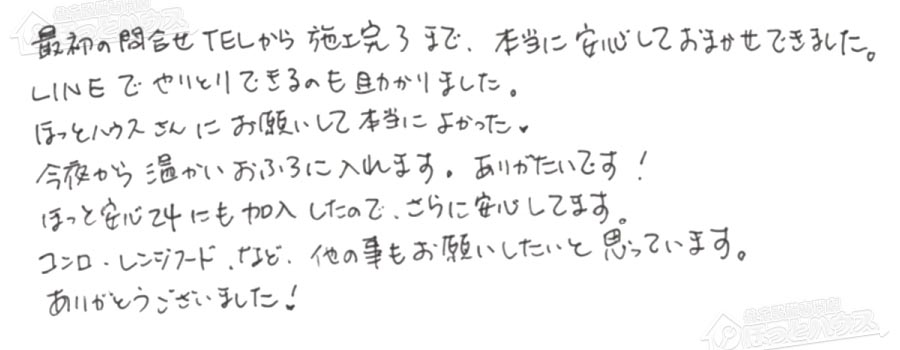 最初の問合せTELから施工完了まで、本当に安心しておまかせできました。
LINEでやりとりできるのも助かりました。
ほっとハウスさんにお願いして本当によかった♥
今夜から温かいおふろに入れます。ありがたいです！
ほっと安心24にも加入したので、さらに安心してます。
コンロ・レンジフード、など、他の事もお願いしたいと思っています。
ありがとうございました！
ほっとハウス